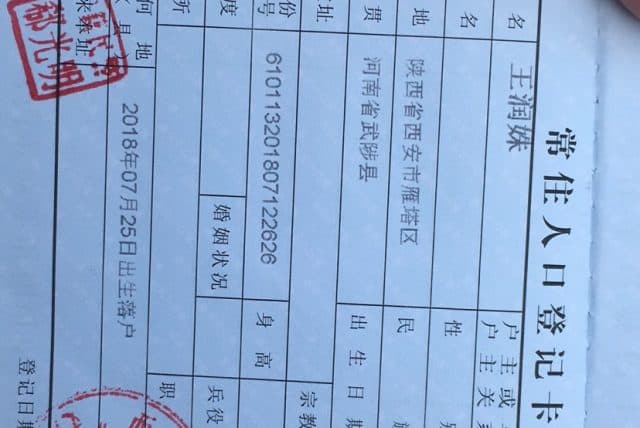 常住人口登记卡
名 王润姝 户主或
户主关
名 性
地 陕西省西安市雁塔区 民
贯 河南省武涉县 出生日
址 宗教
份 610113201807122626 身高
号
度 婚姻状况 兵役
所 职
何 地 2018年07月25日出生落户
郗光明
登记日